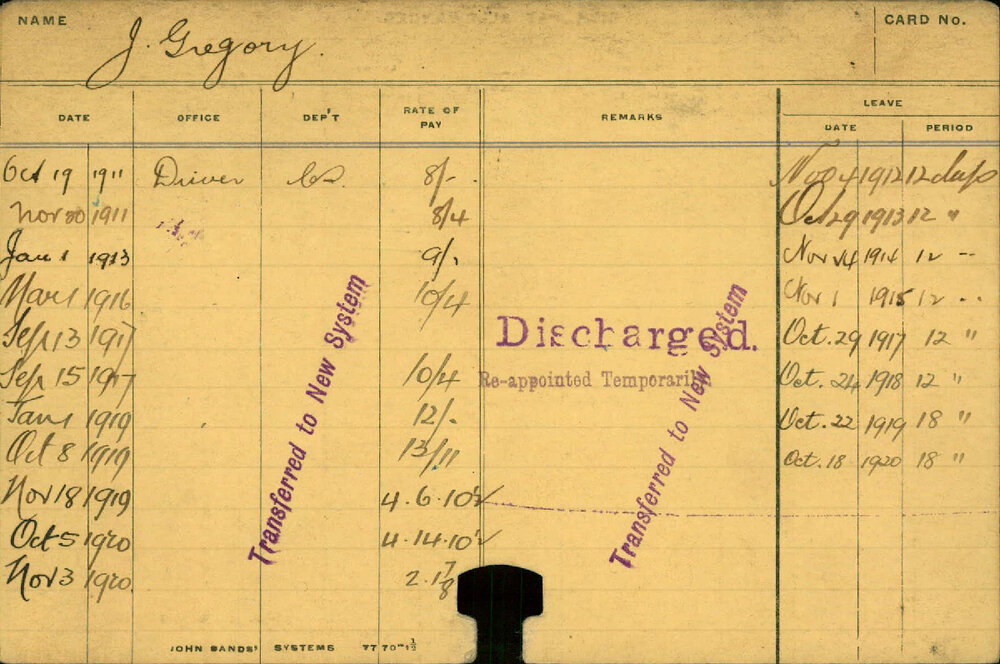 NAME CARD No.
J. Gregory.
DATE OFFICE DEP'T RATE OF PAY REMARKS LEAVE
DATE PERIOD
Oct 19 1911 Driver 8/- Nov 4 1912 12 days
Nov 20 1911 8/4 Oct 29 1913 12 "
Jan 1 1913 9/- Nov 14 1914 12 --
Mar 1 1916 10/4 Nov 1 1915 12 ..
Sep 13 1917 Discharged. Oct. 29 1917 12 "
Sep 15 1917 10/4 Re-appointed Temporarily Oct. 24 1918 12 "
Jan 1 1919 12/- Oct. 22 1919 18 "
Oct 8 1919 13/11 Oct. 18 1920 18 "
Nov 18 1919 4.6.10
Oct 5 1920 4.14.10
Nov 3 1920
Transferred to New System
Transferred to New System
JOHN SANDS' SYSTEMS